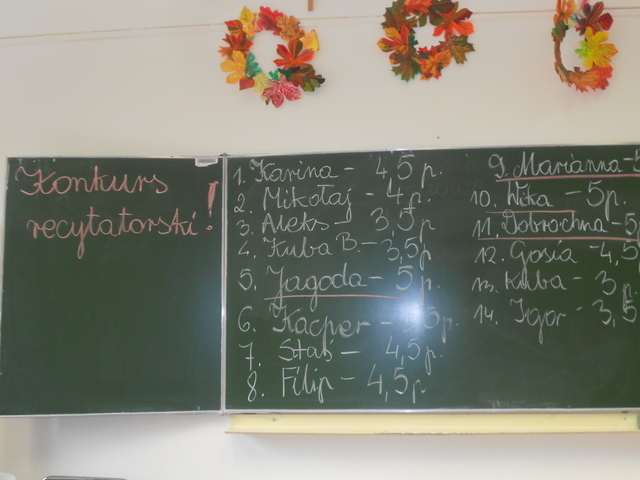 Konkurs
recytatorski!
1. Karina - 4,5 p.
2. Mikołaj - 4 p.
3. Aleks - 3,5 p
4. Kuba B - 3,5 p.
5. Jagoda - 5 p.
6. Kacper - 5 p.
7. Staś - 4,5 p.
8. Filip - 4,5 p
9. Marianna - 5
10. Wika - 5 p.
11. Dobrochna - 5
12. Gosia - 4,5
13. Kuba - 3 p.
14. Igor - 3,5